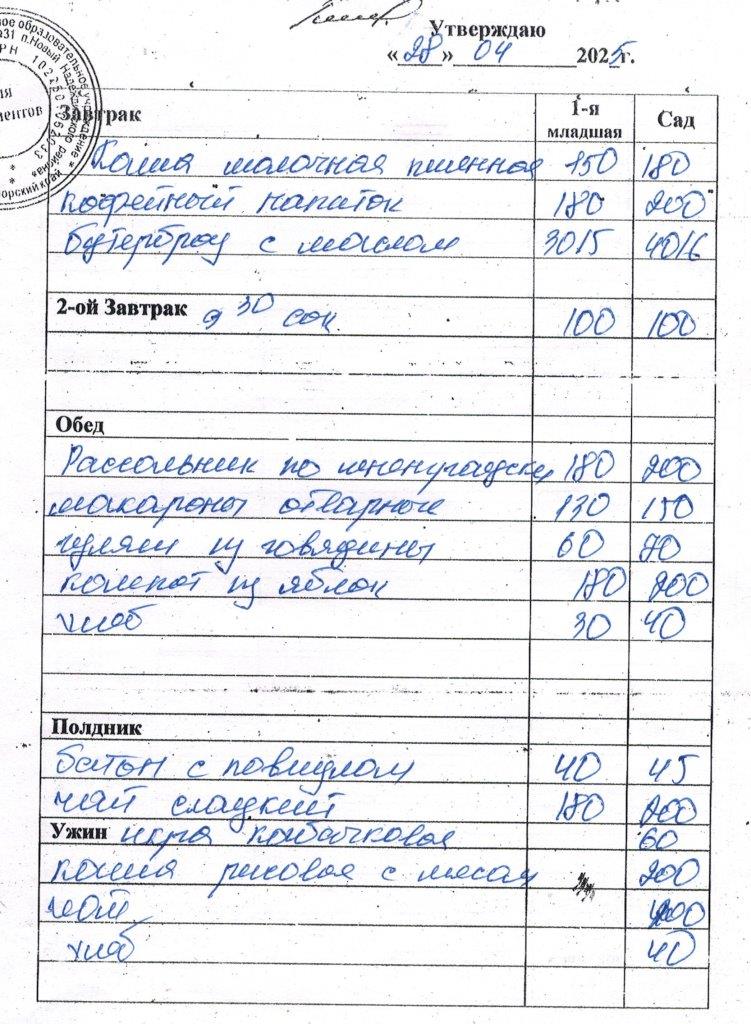 Утверждаю
«28» 04 2025г.
Завтрак 1-я младшая Сад
Каша молочная пшенная 150 180
кофейный напиток 180 200
бутерброд с маслом 30/5 40/6
2-ой Завтрак 9 30 сок 100 100
Обед
Рассольник по ленинградски 180 200
макароны отварные 130 150
гуляш из говядины 60 70
компот из яблок 180 200
хлеб 30 40
Полдник
батон с повидлом 40 45
чай сладкий 180 200
Ужин икра кабачковая 60
каша рисовая с мясом 200
чай 200
хлеб 40